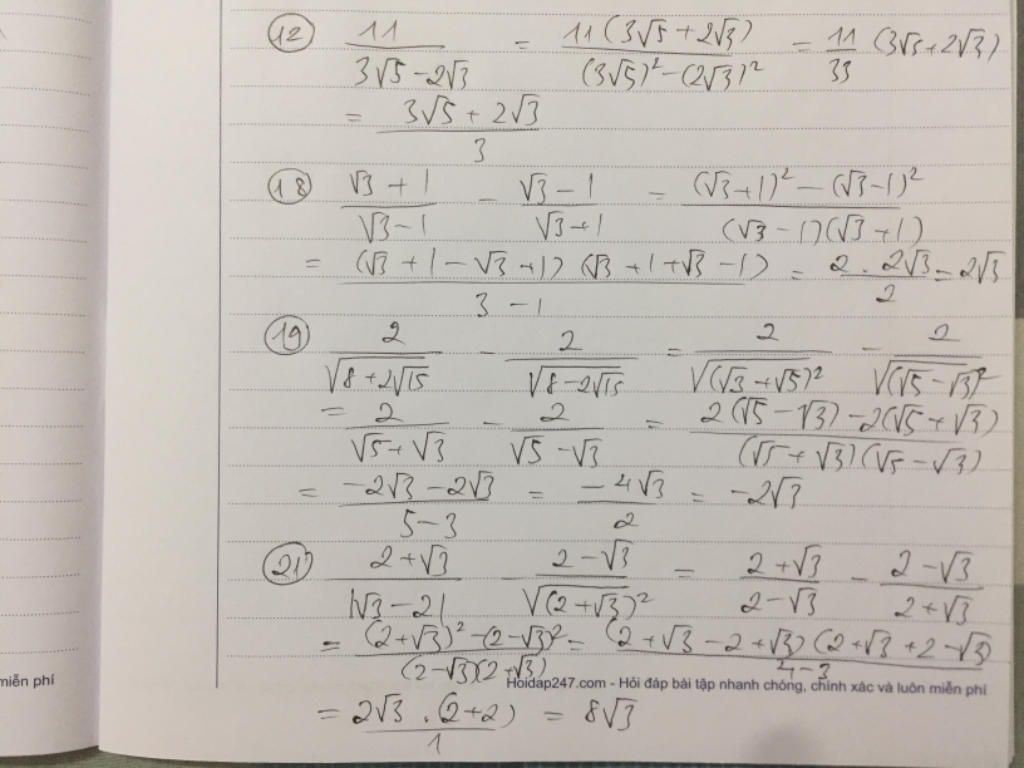 (12) 11/(3√5 - 2√3) = 11(3√5 + 2√3)/((3√5)² - (2√3)²) = 11/33 (3√5 + 2√3)
= (3√5 + 2√3)/3
(18) (√3 + 1)/(√3 - 1) - (√3 - 1)/(√3 + 1) = ((√3 + 1)² - (√3 - 1)²)/((√3 - 1)(√3 + 1))
= (√3 + 1 - √3 + 1)(√3 + 1 + √3 - 1)/(3 - 1) = 2 . 2√3/2 = 2√3
(19) 2/√(8 + 2√15) - 2/√(8 - 2√15) = 2/√((√3 + √5)²) - 2/√((√5 - √3)²)
= 2/(√5 + √3) - 2/(√5 - √3) = (2(√5 - √3) - 2(√5 + √3))/((√5 + √3)(√5 - √3))
= (-2√3 - 2√3)/(5 - 3) = -4√3/2 = -2√3
(21) (2 + √3)/|√3 - 2| - (2 - √3)/√((2 + √3)²) = (2 + √3)/(2 - √3) - (2 - √3)/(2 + √3)
= ((2 + √3)² - (2 - √3)²)/((2 - √3)(2 + √3)) = (2 + √3 - 2 + √3)(2 + √3 + 2 - √3)/(4 - 3)
miễn phí
Hoidap247.com - Hỏi đáp bài tập nhanh chóng, chính xác và luôn miễn phí
= 2√3 . (2 + 2)/1 = 8√3